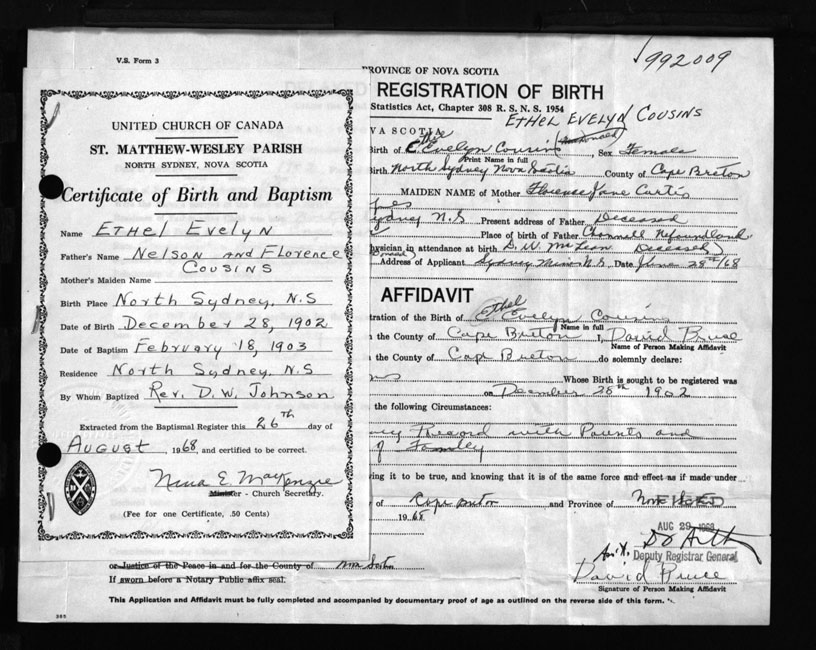 V.S. Form 3
992009
PROVINCE OF NOVA SCOTIA
REGISTRATION OF BIRTH
Statistics Act, Chapter 308 R. S. N. S. 1954
ETHEL EVELYN COUSINS
VA SCOTIA
Birth of Ethel E. Evelyn Cousins Sex Female
Print Name in full
Birth North Sydney Nova Scotia County of Cape Breton
MAIDEN NAME of Mother Florence Jane Curtis
Sydney N.S Present address of Father Deceased
Place of birth of Father Channell Nefoundland
physician in attendance at birth D. W. McLean Deceased
Address of Applicant Sydney Mines N.S. Date June 28th/68
AFFIDAVIT
tration of the Birth of Ethel E. Evelyn Cousins
Name in full
n the County of Cape Breton I, David Pruce
Name of Person Making Affidavit
n the County of Cape Breton do solemnly declare:
Whose Birth is sought to be registered was
on December 28th 1902
the following Circumstances:
Record with Parents and
of Family
ving it to be true, and knowing that it is of the same force and effect as if made under
of Cape Breton and Province of Nova Scotia
1968
AUG 29 1968
Deputy Registrar General
or Justice of the Peace in and for the County of Nova Scotia
If sworn before a Notary Public affix seal.
David Pruce
Signature of Person Making Affidavit
This Application and Affidavit must be fully completed and accompanied by documentary proof of age as outlined on the reverse side of this form.
UNITED CHURCH OF CANADA
ST. MATTHEW-WESLEY PARISH
NORTH SYDNEY, NOVA SCOTIA
Certificate of Birth and Baptism
Name ETHEL EVELYN
Father's Name NELSON AND FLORENCE
COUSINS
Mother's Maiden Name
Birth Place NORTH SYDNEY, N.S
Date of Birth December 28, 1902
Date of Baptism February 18, 1903
Residence NORTH SYDNEY, N.S
By Whom Baptized Rev. D. W. Johnson
Extracted from the Baptismal Register this 26th day of
AUGUST 1968, and certified to be correct.
Nina E. MacKenzie
Minister - Church Secretary.
(Fee for one Certificate, .50 Cents)